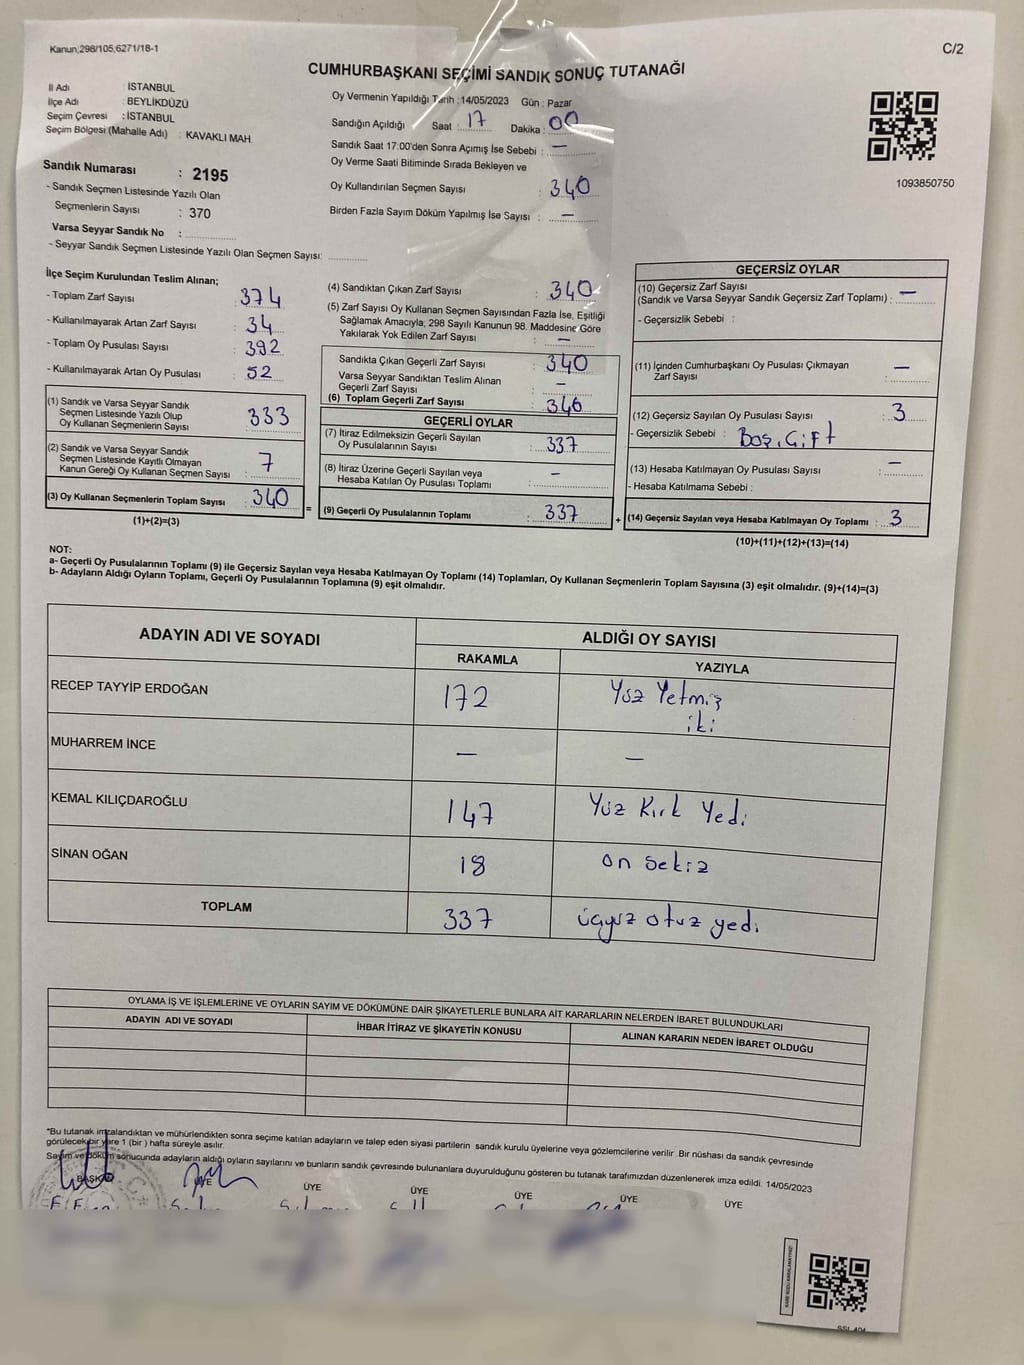 Kanun;298/105;6271/18-1
C/2
CUMHURBAŞKANI SEÇİMİ SANDIK SONUÇ TUTANAĞI
İl Adı : İSTANBUL
İlçe Adı : BEYLİKDÜZÜ
Seçim Çevresi : İSTANBUL
Seçim Bölgesi (Mahalle Adı) : KAVAKLI MAH.
Sandık Numarası : 2195
- Sandık Seçmen Listesinde Yazılı Olan
Seçmenlerin Sayısı : 370
Varsa Seyyar Sandık No :
- Seyyar Sandık Seçmen Listesinde Yazılı Olan Seçmen Sayısı:
Oy Vermenin Yapıldığı Tarih :14/05/2023 Gün : Pazar
Sandığın Açıldığı Saat : 17 Dakika : 00
Sandık Saat 17:00'den Sonra Açımış İse Sebebi : —
Oy Verme Saati Bitiminde Sırada Bekleyen ve
Oy Kullandırılan Seçmen Sayısı : 340
Birden Fazla Sayım Döküm Yapılmış İse Sayısı : —
1093850750
İlçe Seçim Kurulundan Teslim Alınan;
- Toplam Zarf Sayısı : 374
- Kullanılmayarak Artan Zarf Sayısı : 34
- Toplam Oy Pusulası Sayısı : 392
- Kullanılmayarak Artan Oy Pusulası : 52
(1) Sandık ve Varsa Seyyar Sandık
Seçmen Listesinde Yazılı Olup
Oy Kullanan Seçmenlerin Sayısı : 333
(2) Sandık ve Varsa Seyyar Sandık
Seçmen Listesinde Kayıtlı Olmayan
Kanun Gereği Oy Kullanan Seçmen Sayısı : 7
(3) Oy Kullanan Seçmenlerin Toplam Sayısı : 340
(1)+(2)=(3)
=
(4) Sandıktan Çıkan Zarf Sayısı : 340
(5) Zarf Sayısı Oy Kullanan Seçmen Sayısından Fazla İse, Eşitliği
Sağlamak Amacıyla, 298 Sayılı Kanunun 98. Maddesine Göre
Yakılarak Yok Edilen Zarf Sayısı : —
Sandıkta Çıkan Geçerli Zarf Sayısı : 340
Varsa Seyyar Sandıktan Teslim Alınan
Geçerli Zarf Sayısı : —
(6) Toplam Geçerli Zarf Sayısı : 340
GEÇERLİ OYLAR
(7) İtiraz Edilmeksizin Geçerli Sayılan
Oy Pusulalarının Sayısı : 337
(8) İtiraz Üzerine Geçerli Sayılan veya
Hesaba Katılan Oy Pusulası Toplamı : —
(9) Geçerli Oy Pusulalarının Toplamı : 337
+
GEÇERSİZ OYLAR
(10) Geçersiz Zarf Sayısı
(Sandık ve Varsa Seyyar Sandık Geçersiz Zarf Toplamı) : —
- Geçersizlik Sebebi :
(11) İçinden Cumhurbaşkanı Oy Pusulası Çıkmayan
Zarf Sayısı : —
(12) Geçersiz Sayılan Oy Pusulası Sayısı : 3
- Geçersizlik Sebebi : Boş, Çift
(13) Hesaba Katılmayan Oy Pusulası Sayısı : —
- Hesaba Katılmama Sebebi :
(14) Geçersiz Sayılan veya Hesaba Katılmayan Oy Toplamı : 3
(10)+(11)+(12)+(13)=(14)
NOT:
a- Geçerli Oy Pusulalarının Toplamı (9) ile Geçersiz Sayılan veya Hesaba Katılmayan Oy Toplamı (14) Toplamları, Oy Kullanan Seçmenlerin Toplam Sayısına (3) eşit olmalıdır. (9)+(14)=(3)
b- Adayların Aldığı Oyların Toplamı, Geçerli Oy Pusulalarının Toplamına (9) eşit olmalıdır.
ADAYIN ADI VE SOYADI ALDIĞI OY SAYISI
RAKAMLA YAZIYLA
RECEP TAYYİP ERDOĞAN 172 Yüz Yetmiş
iki
MUHARREM İNCE — —
KEMAL KILIÇDAROĞLU 147 Yüz Kırk Yedi
SİNAN OĞAN 18 on Sekiz
TOPLAM 337 üçyüz otuz yedi
OYLAMA İŞ VE İŞLEMLERİNE VE OYLARIN SAYIM VE DÖKÜMÜNE DAİR ŞİKAYETLERLE BUNLARA AİT KARARLARIN NELERDEN İBARET BULUNDUKLARI
ADAYIN ADI VE SOYADI İHBAR İTİRAZ VE ŞİKAYETİN KONUSU ALINAN KARARIN NEDEN İBARET OLDUĞU
*Bu tutanak imzalandıktan ve mühürlendikten sonra seçime katılan adayların ve talep eden siyasi partilerin sandık kurulu üyelerine veya gözlemcilerine verilir. Bir nüshası da sandık çevresinde
görülecek bir yere 1 (bir ) hafta süreyle asılır.
Sayım ve döküm sonucunda adayların aldığı oyların sayılarını ve bunların sandık çevresinde bulunanlara duyurulduğunu gösteren bu tutanak tarafımızdan düzenlenerek imza edildi. 14/05/2023
BAŞKAN ÜYE ÜYE ÜYE ÜYE ÜYE ÜYE